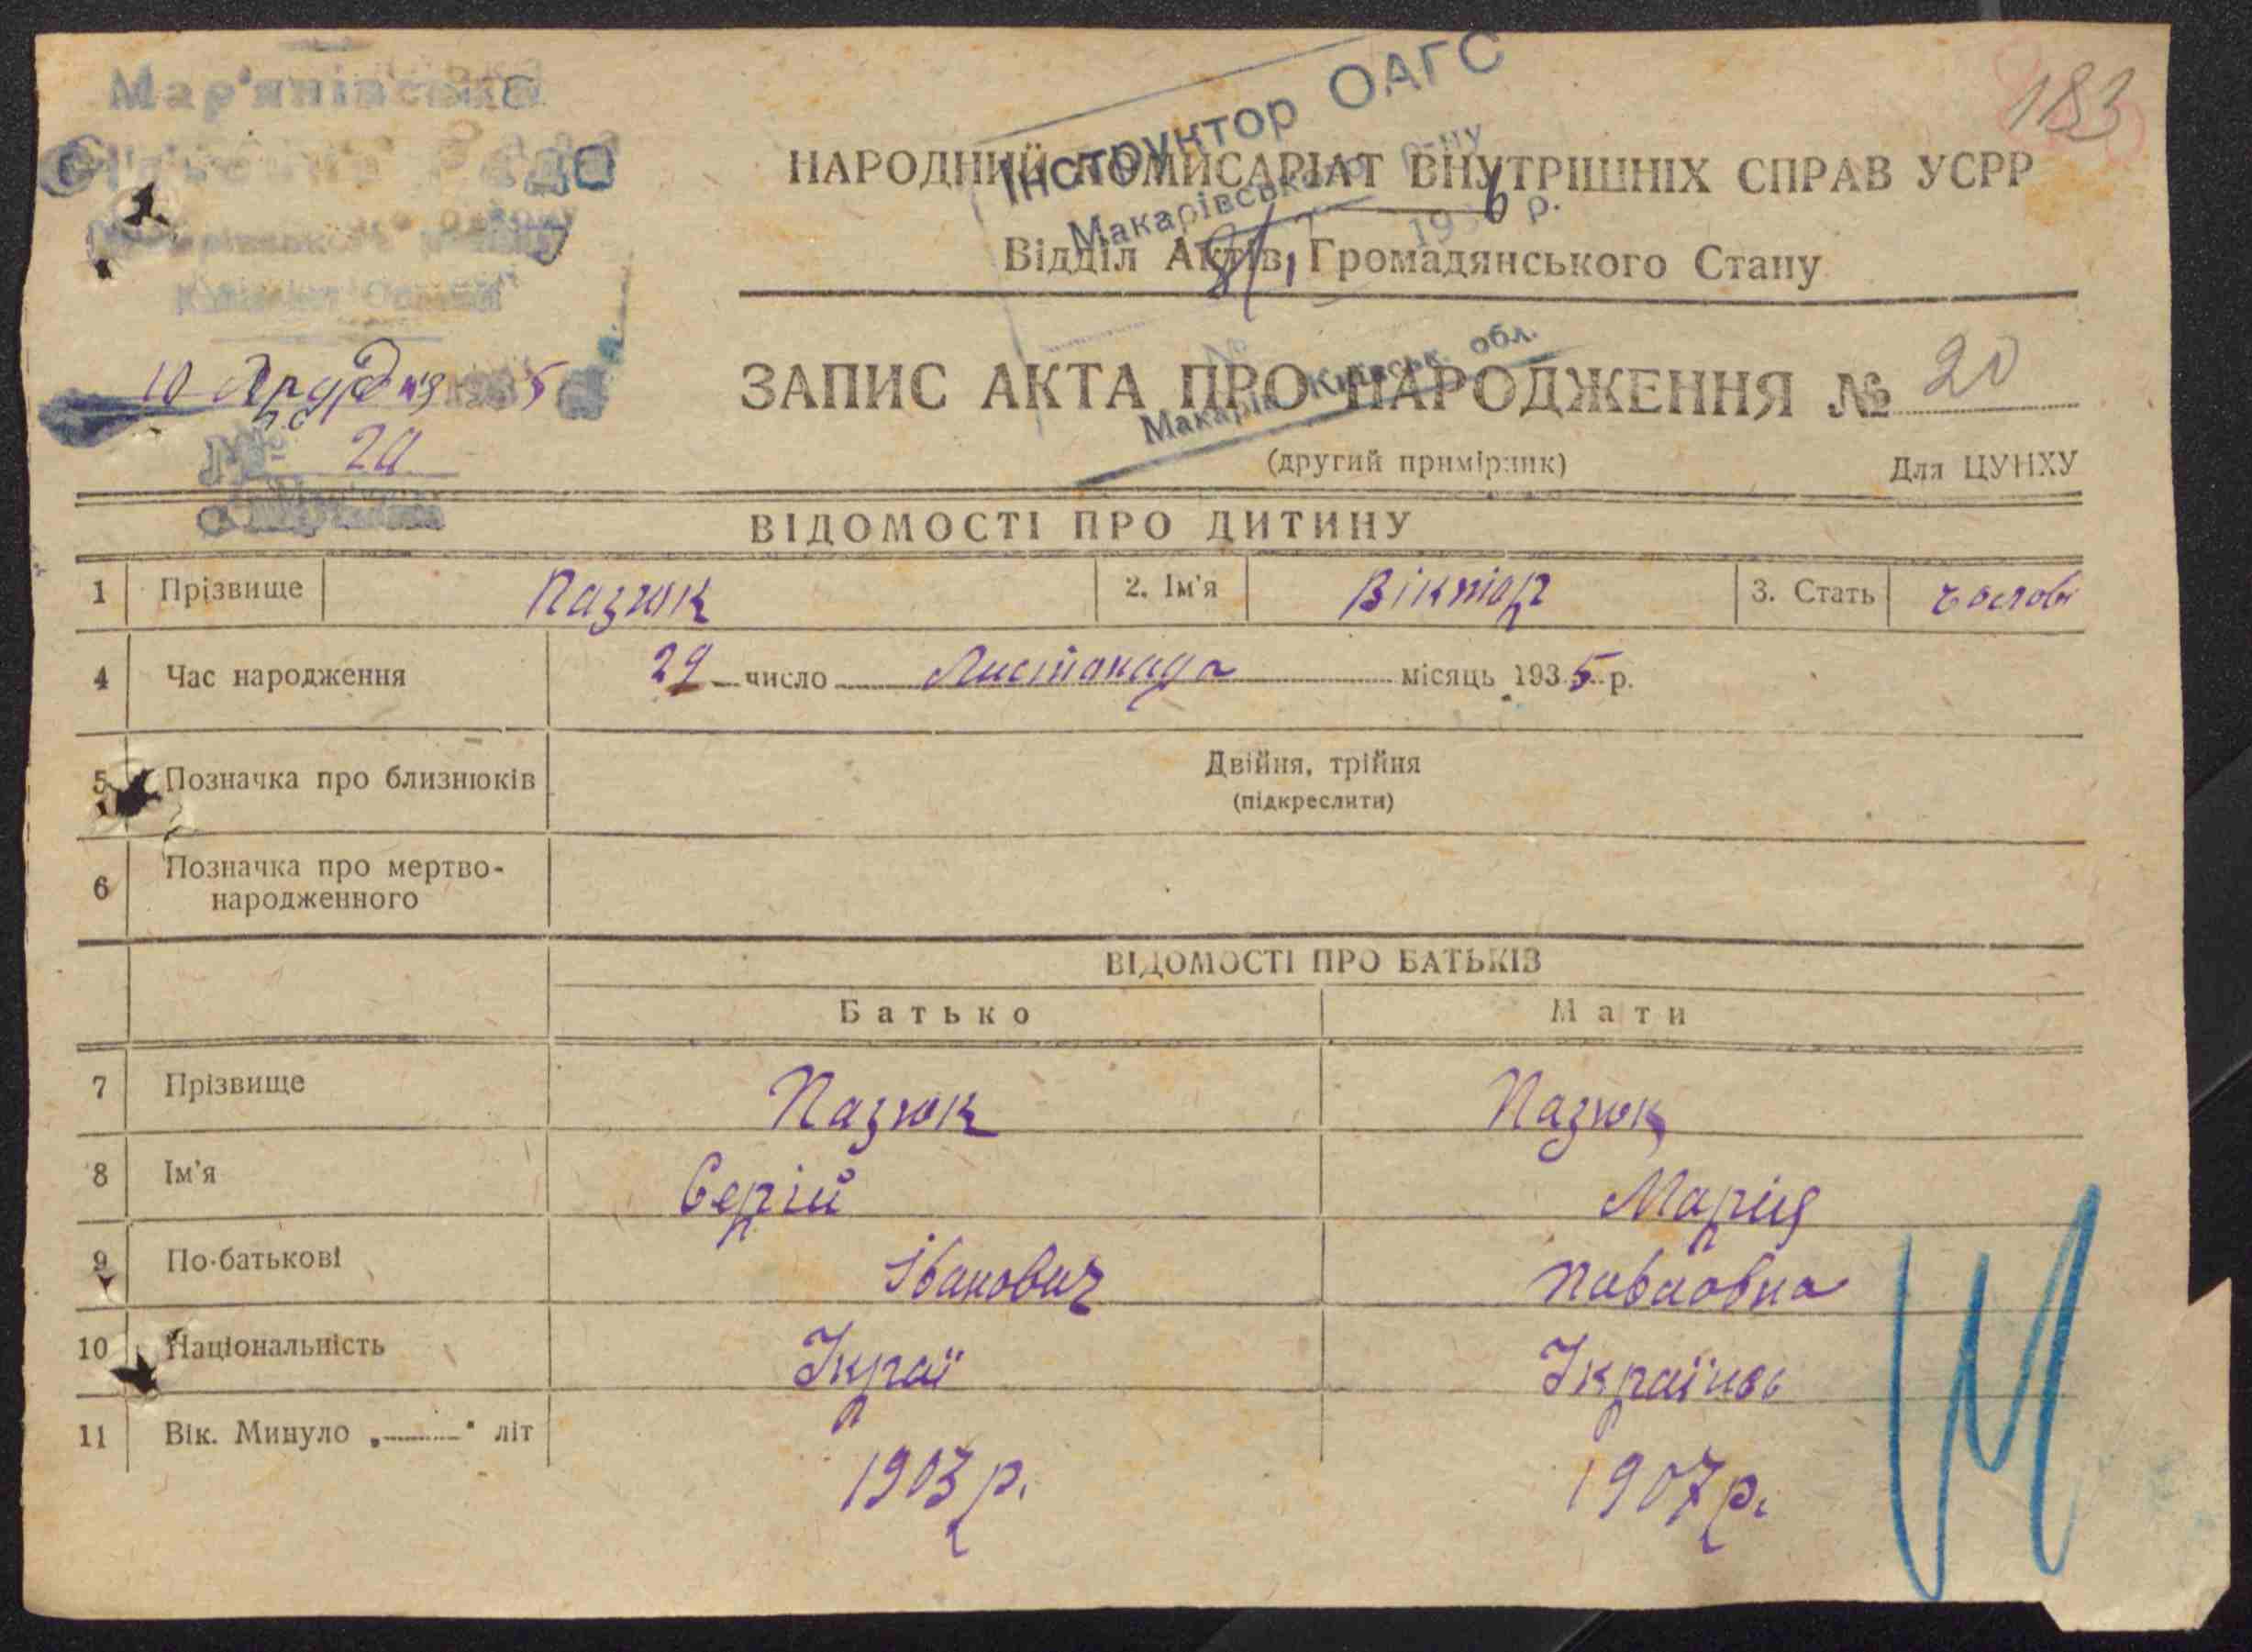 183
Мар'янівська
10 Грудня 1935
№ 20
Інструктор ОАГС
Макарівського р-ну
8/I 1936 р.
Макарів Київськ. обл.
НАРОДНИЙ КОМИСАРІАТ ВНУТРІШНІХ СПРАВ УСРР
Відділ Актів Громадянського Стану
ЗАПИС АКТА ПРО НАРОДЖЕННЯ № 20
(другий примірник) Для ЦУНХУ
ВІДОМОСТІ ПРО ДИТИНУ
1 Прізвище Пазюк 2. Ім'я Віктор 3. Стать чолові
4 Час народження 29 число Листопада місяць 1935 р.
5 Позначка про близнюків Двійня, трійня
(підкреслити)
6 Позначка про мертво-
народженного
ВІДОМОСТІ ПРО БАТЬКІВ
Батько Мати
7 Прізвище Пазюк Пазюк
8 Ім'я Сергій Марія
9 По-батькові Іванович Павловна
10 Національність Украї Україн
11 Вік. Минуло „ " літ 1903 р. 1907 р.